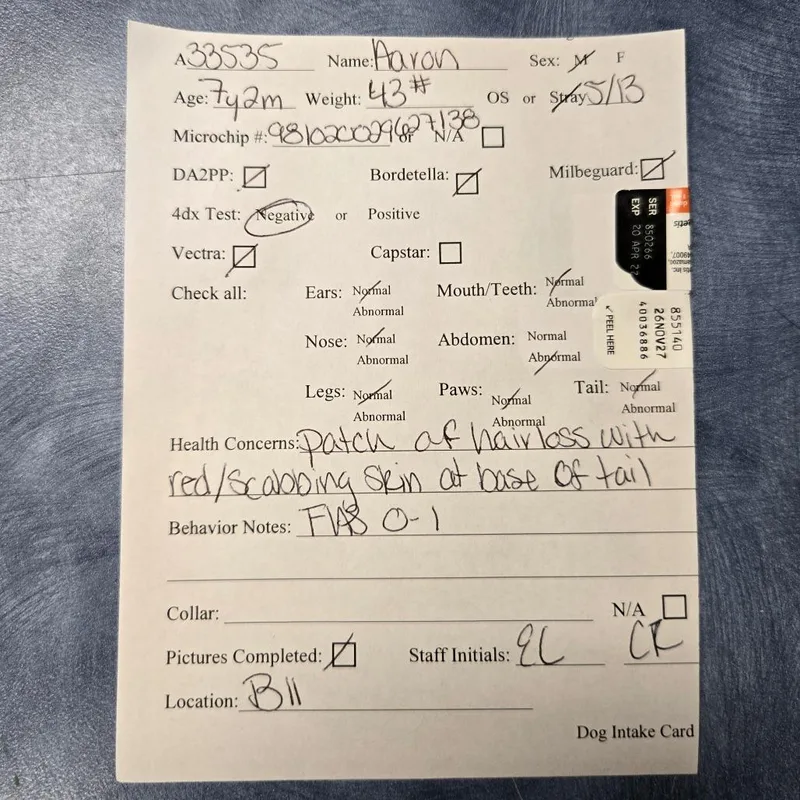 A33535 Name: Aaron Sex: M F
Age: 7y2m Weight: 43# OS or Stray 5/13
Microchip #: 981020029627138 or N/A
DA2PP: Bordetella: Milbeguard:
4dx Test: Negative or Positive
Vectra: Capstar:
Check all: Ears: Normal Abnormal Mouth/Teeth: Normal Abnormal
Nose: Normal Abnormal Abdomen: Normal Abnormal
Legs: Normal Abnormal Paws: Normal Abnormal Tail: Normal Abnormal
Health Concerns: patch of hairloss with
red/scabbing skin at base of tail
Behavior Notes: FAS 0-1
Collar: N/A
Pictures Completed: Staff Initials: EC CR
Location: B11
Dog Intake Card
SER 850266
EXP 20 APR 27
855140
26NOV27
40036886
PEEL HERE